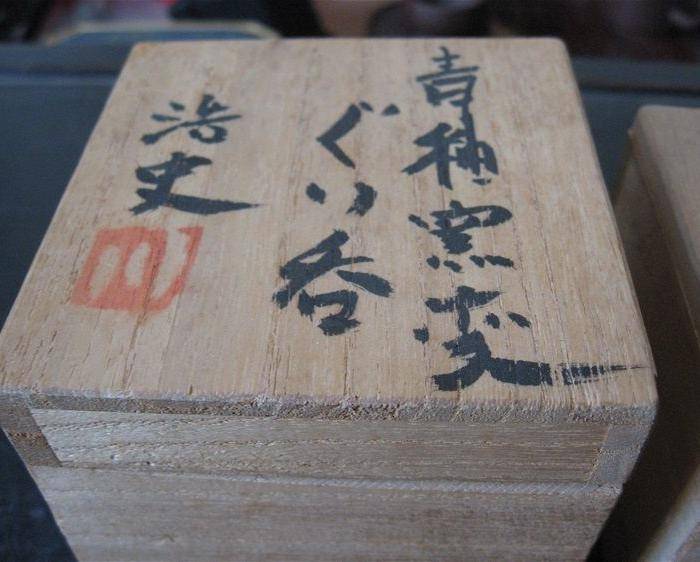 青釉窯変
ぐい呑
浩史